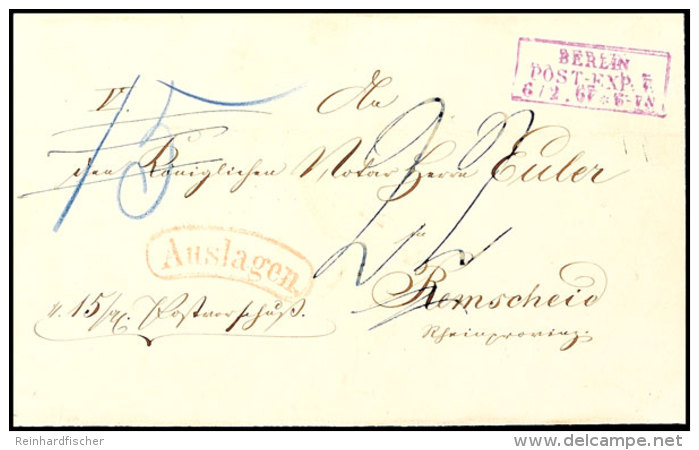 BERLIN
POST-EXP. 7.
6/2. 67 * 6-7 N
V.
An
15
den Königlichen Notar Herrn Euler
in
Auslagen.
Remscheid
Rheinprovinz.
15 Postvorschuß.
Reinhardfischer
www.delcampe.net